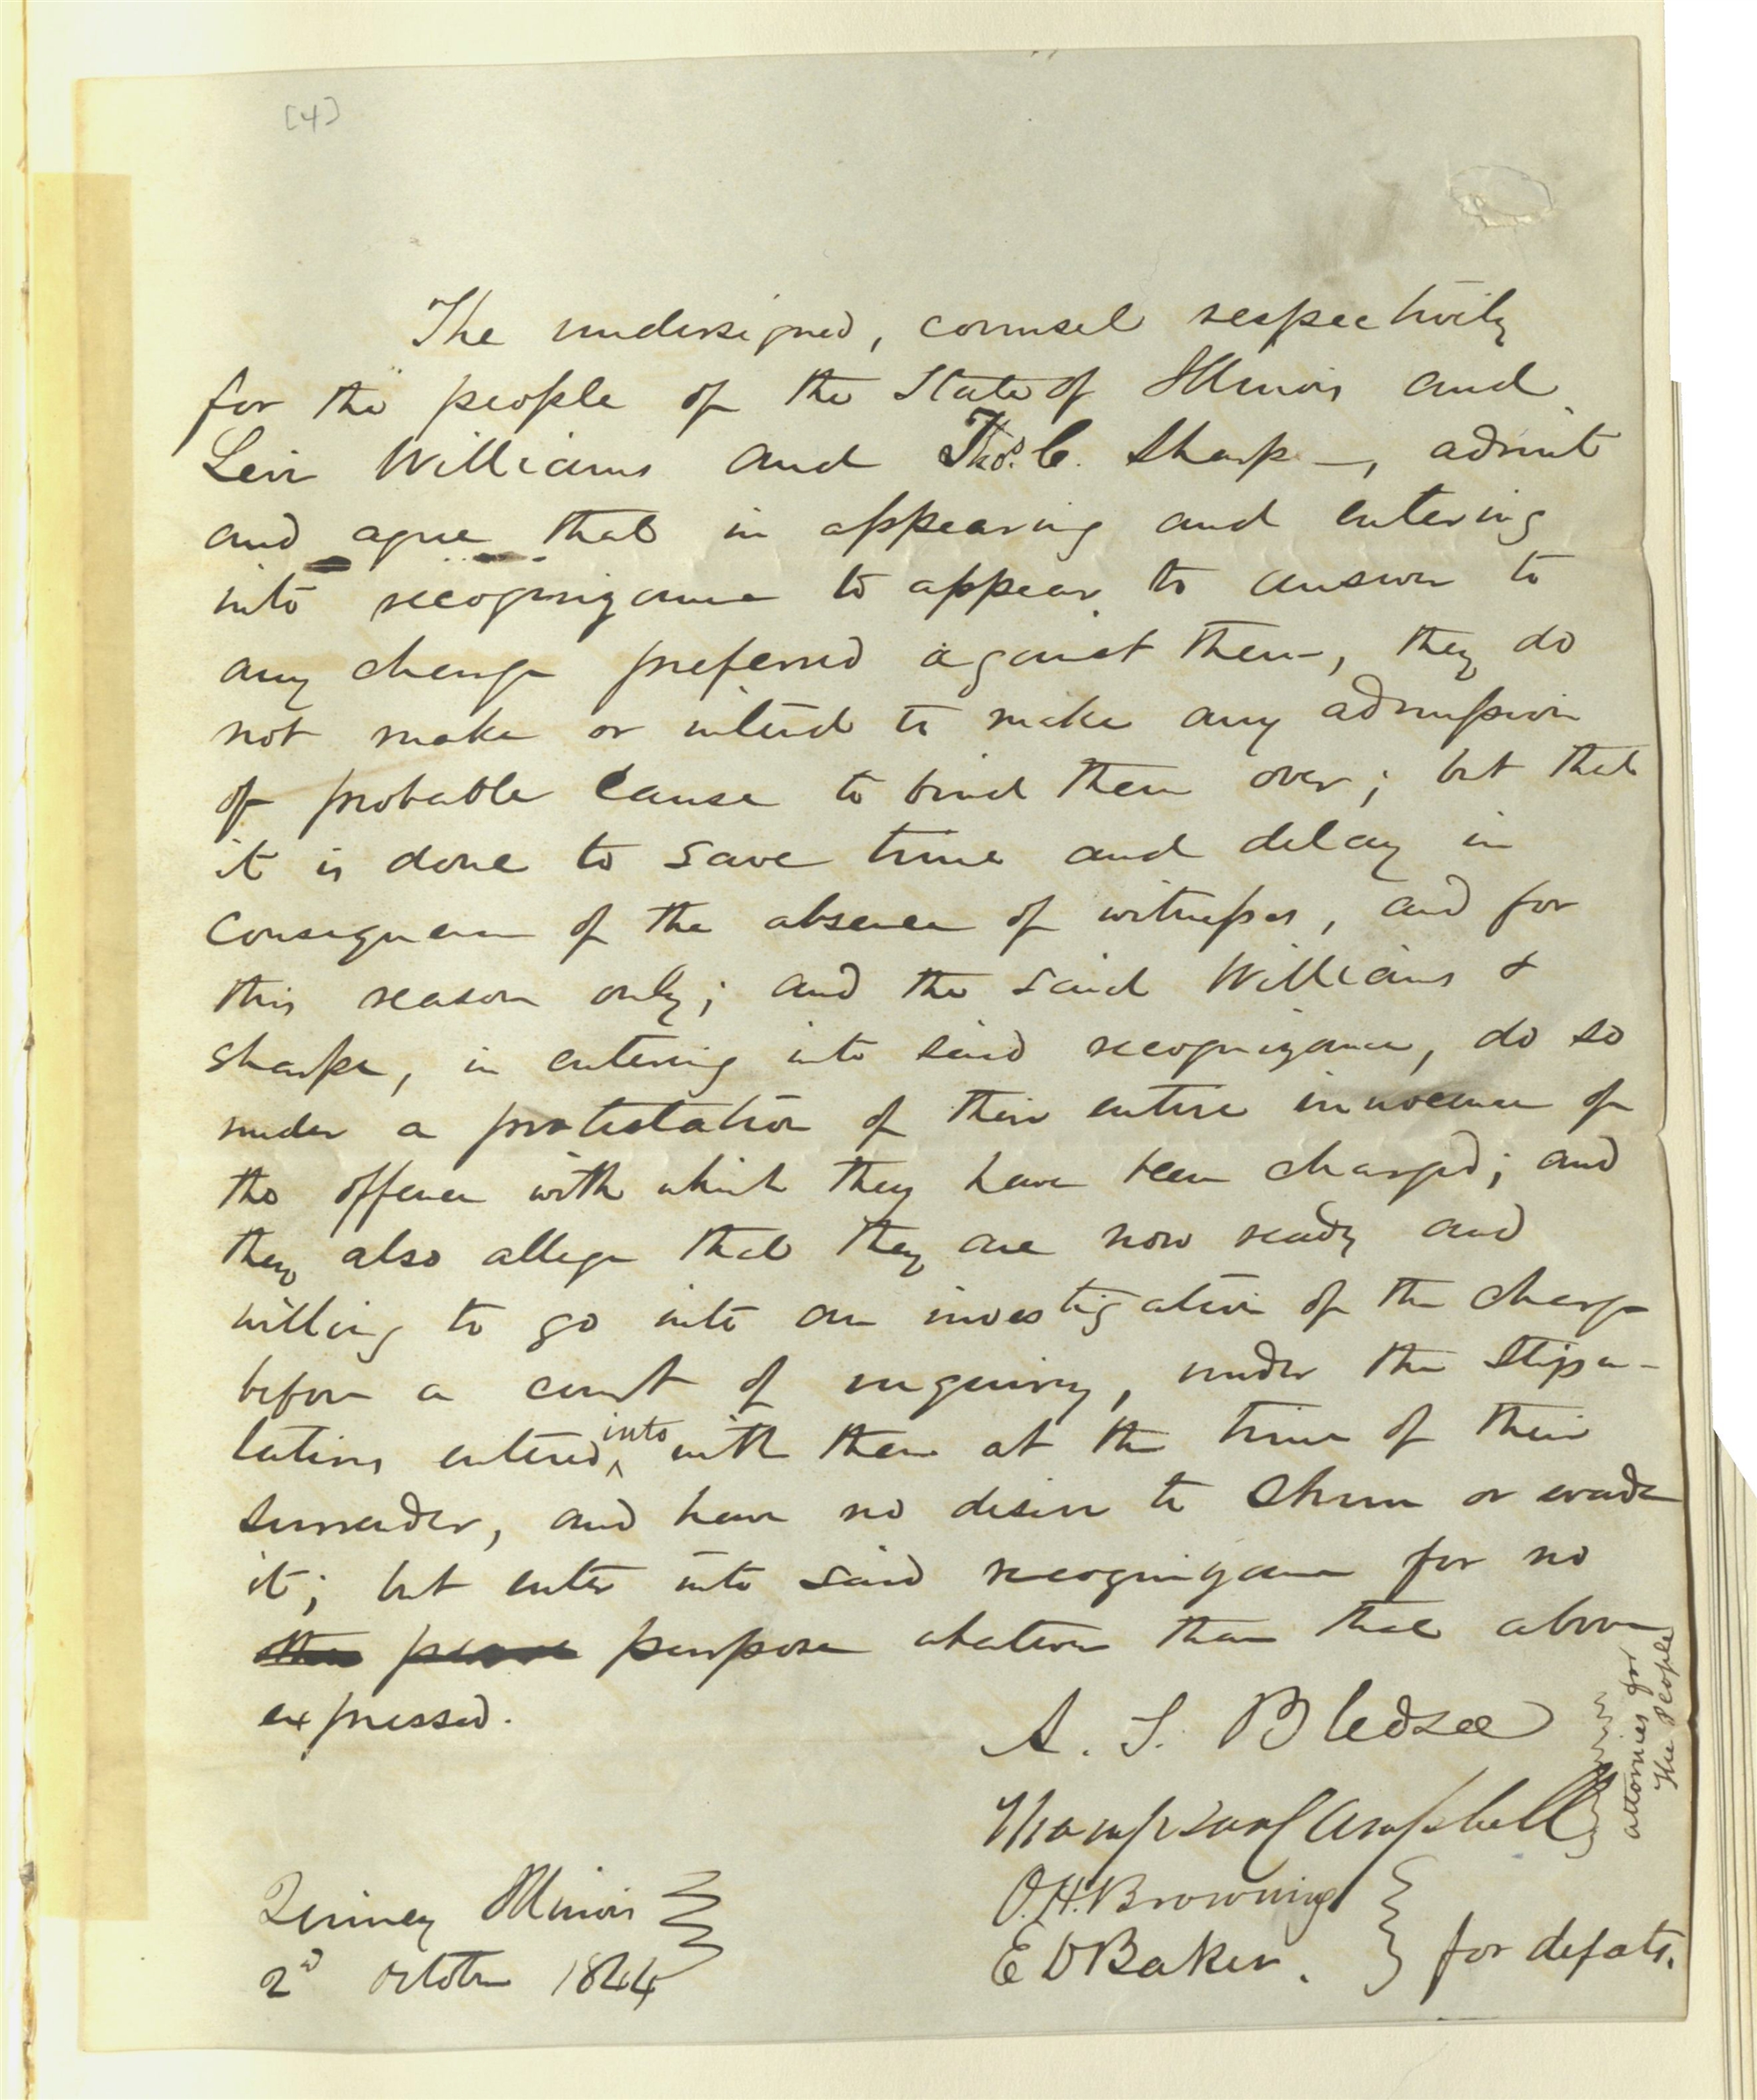 [4]
The undersigned, counsel respectively
for the people of the State of Illinois and
Levi Williams and Thos. C. Sharp –, admit
and agree that in appearing and entering
into recognizance to appear to answer to
any charge preferred against them, they do
not make or intend to make any admission
of probable cause to bind them over; but that
it is done to save time and delay in
consequence of the absence of witnesses, and for
this reason only; and the said Williams &
Sharpe, in entering into said recognizance, do so
under a protestation of their entire innocence of
the offence with which they have been charged; and
they also allege that they are now ready and
willing to go into an investigation of the charge
before a court of inquiry, under the stipu-
lations entered into with them at the time of their
surrender, and have no desire to shun or evade
it; but enter into said recognizance for no
purpose whatever than that above
expressed.
A. T. Bledsoe
Thompson Campbell
attornies for
the People
O. H. Browning
E D Baker.
for defdts.
Quincy Illinois
2d October 1844